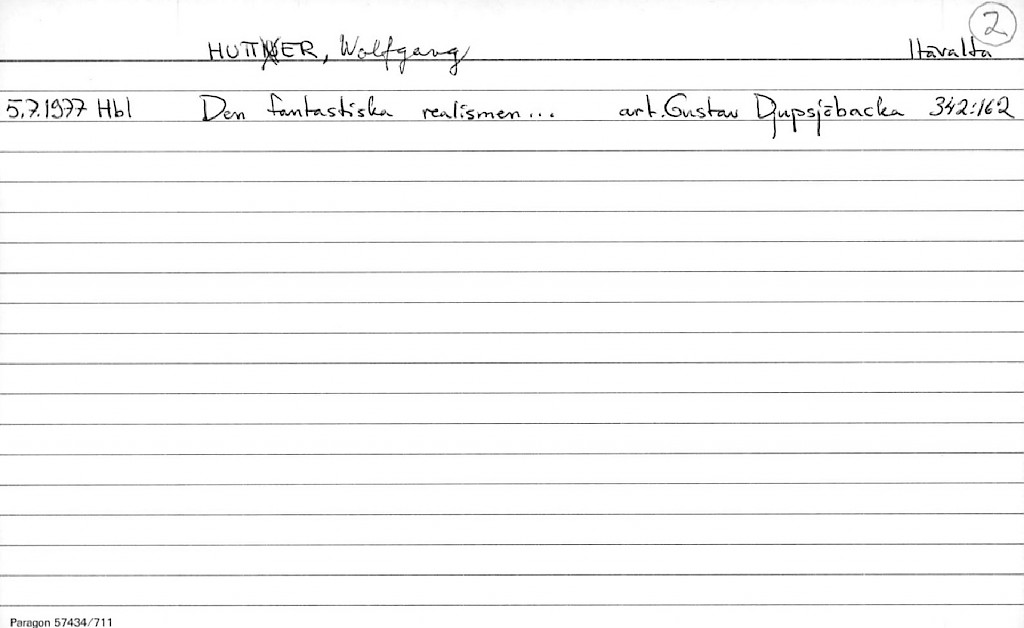 2
HUTTER, Wolfgang Itävalta
5.7.1977 Hbl Den fantastiska realismen... art. Gustav Djupsjöbacka 342:162
Paragon 57434/711